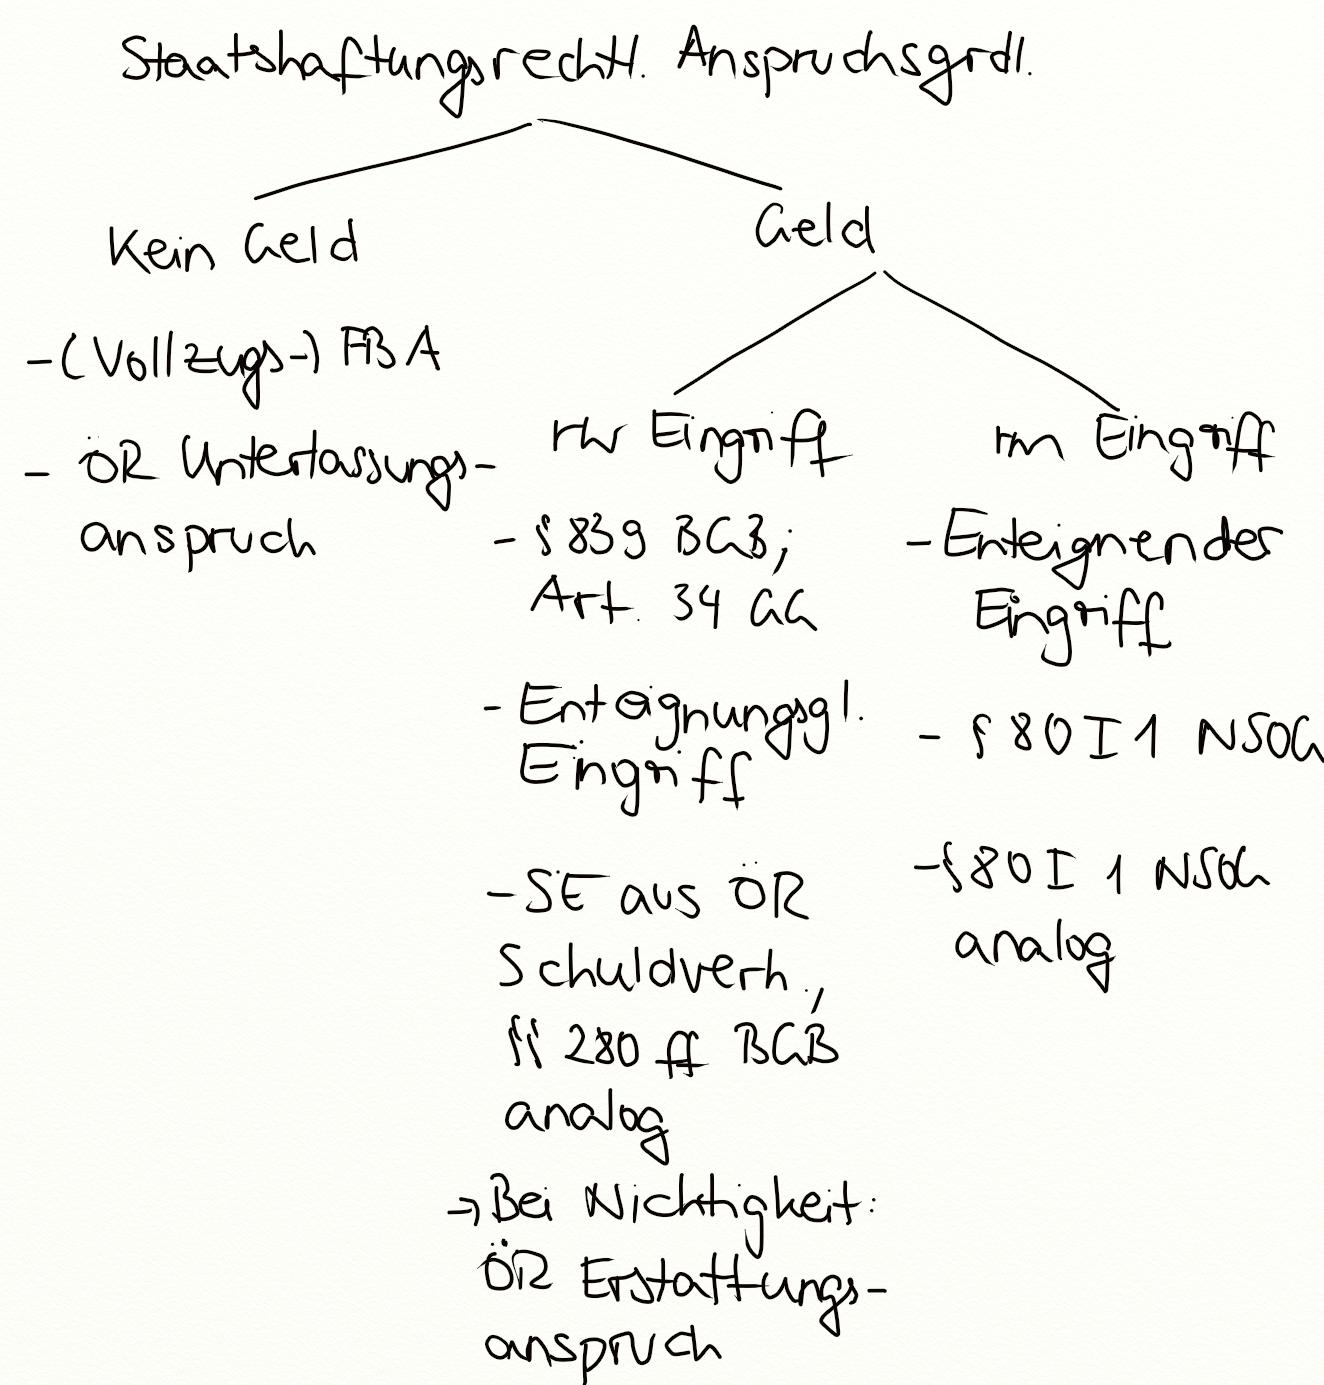 Staatshaftungsrechtl. Anspruchsgrdl.
Kein Geld
- (Vollzugs-) FBA
- ÖR Unterlassungs-
anspruch
Geld
rw Eingriff
- § 839 BGB;
Art. 34 GG
- Enteignungsgl.
Eingriff
- SE aus ÖR
Schuldverh.,
§§ 280 ff BGB
analog
→ Bei Nichtigkeit:
ÖR Erstattungs-
anspruch
rm Eingriff
- Enteignender
Eingriff
- § 80 I 1 NSOG
- § 80 I 1 NSOG
analog